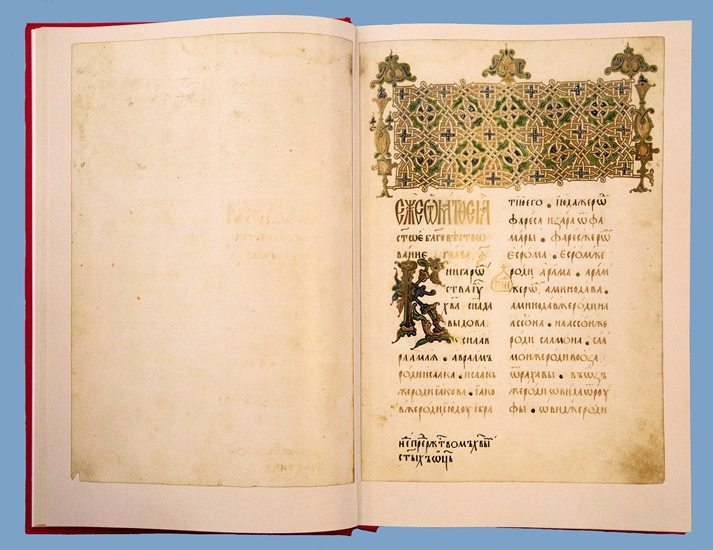 ЕЖЕ Ѿ МАТѲЕА
ст҃ое благовѣствѡ
вание глава, а҃
Книга рѡⷤ
ства іѵ҃
хв҃а сн҃а да
выдова
сн҃а ав
раамля • авраамъ
роди исаака • исаакъ
же роди іакова • іако
вже роди июдоу ибра
тию его • июда же рѡⷣ
фареса и зара ѿ фа
мары • фарес же рѡⷣ
есрома • есром же
роди арама • арам
же рѡⷣ аминодава •
аминодав же роди на
ассона • наассон же
роди салмона • сал
мон же роди вооза
ѿ рахавы • вѡѡзъ
же роди ѡвида ѿ роу
фы • ѡвид же роди
неⷣ преⷣ ржⷭтвомъ хв҃ы
ст҃ыхъ ѡц҃ь